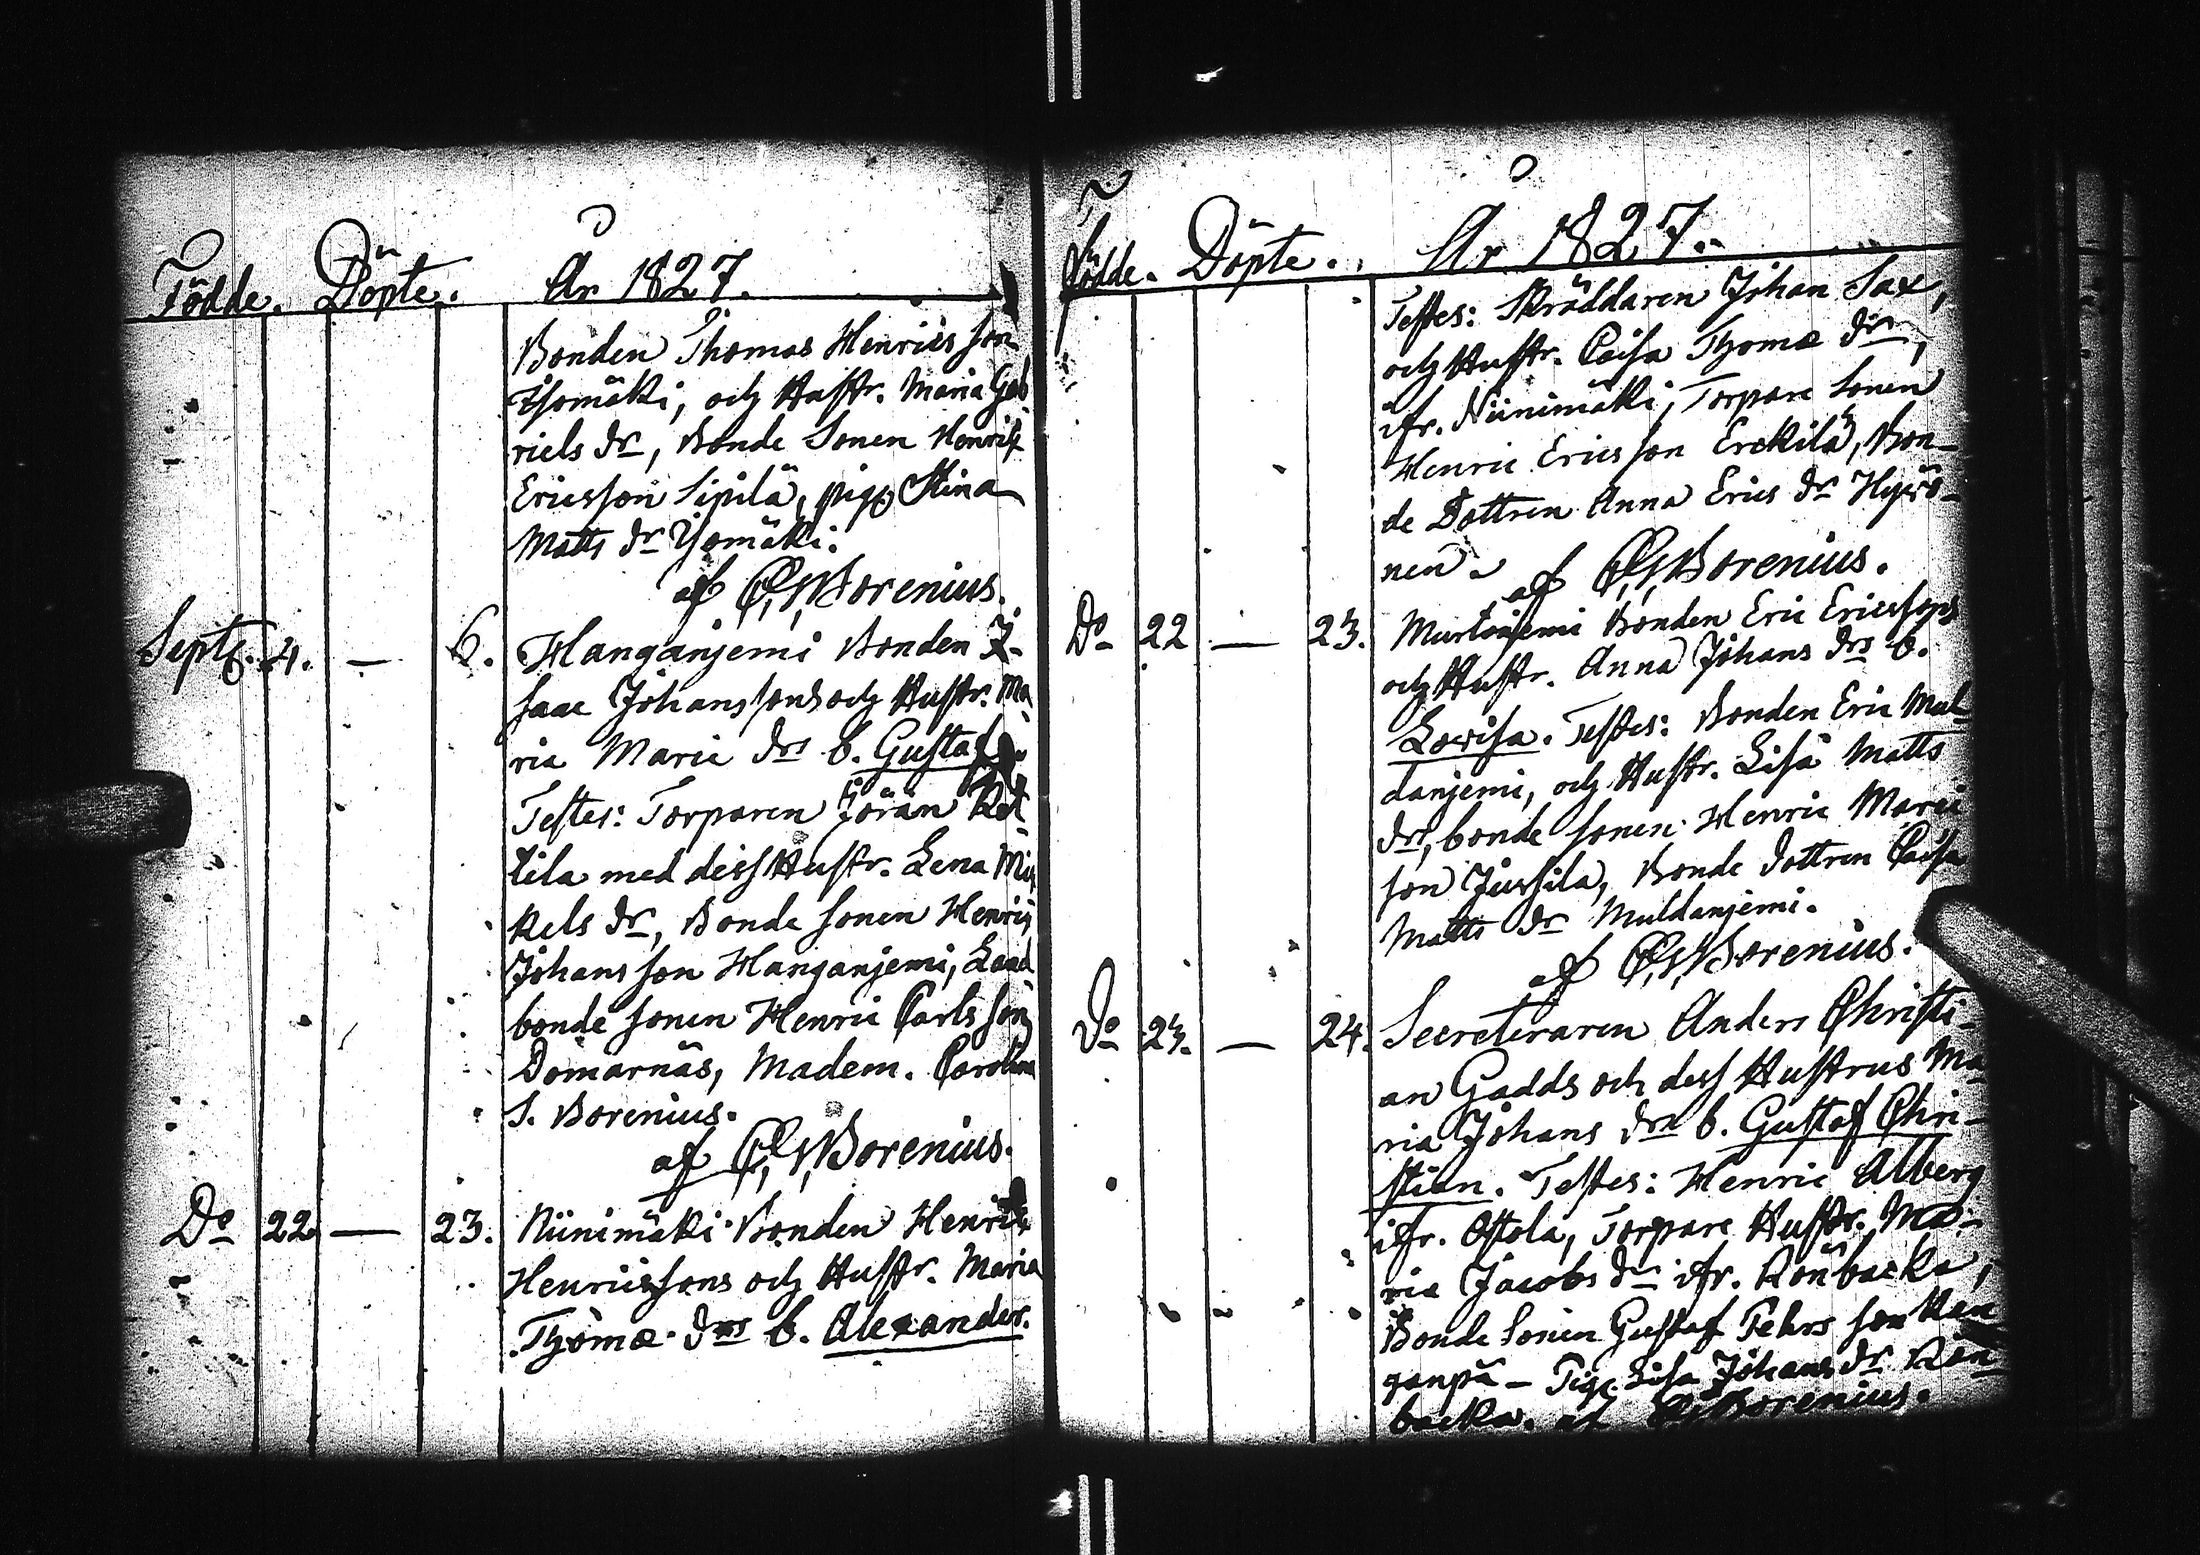 Födde. Döpte. År 1827.
Bonden Thomas Henricsson
Isomäki, och Hustr. Maria Gab
riels dr, Bonde Sonen Henrik
Ericsson Sipilä, pig. Stina
Matts dr Isomäki.
af C, G, Borenius.
Septb. 4. — 6. Hanganjemi Bonden I-
saac Johanssons och Hustr. Ma
ria Marie drs b. Gustaf.
Testes: Torparen Jöran
tila med dess Hustr. Lena Mi
kels dr, Bonde sonen Henric
Johansson Hanganjemi, Land
bonde sonen Henric Carlsson
Domarnäs, Madem. Carolina
S. Borenius.
af C, G, Borenius.
Do 22 — 23. Niinimäki Bonden Henrik
Henricssons och Hustr. Maria
Thomæ drs b. Alexander.
Födde. Döpte. År 1827.
Testes: Skräddaren Johan Sax,
och Hustr. Caisa Thomæ dr,
ifr. Niinimäki, Torpare Sonen
Henric Ericsson Erckilä, Bon-
de Dottren Anna Erics dr Hyvö-
nen. af C, G, Borenius.
Do 22 — 23. Murtonjemi Bonden Eric Ericssons
och Hustr. Anna Johans drs b.
Lovisa. Testes: Bonden Eric Mul
danjemi, och Hustr. Lisa Matts
dr, bonde sonen Henric Marci
son Jussila, Bonde dottren Caisa
Matts dr Muldanjemi.
af C, G, Borenius.
Do 23. — 24. Secreteraren Anders Christi-
an Gadds och dess Hustrus Ma-
ria Johans drs b. Gustaf Chri-
stian. Testes: Henric Alberg
ifr. Ottola, Torpare Hustr. Ma-
ria Jacobs dr ifr. Rönbacka,
Bonde Sonen Gustaf Pehrs son Kan
ganpä — Pig. Lisa Johans dr Rön
backa. af C, G, Borenius.